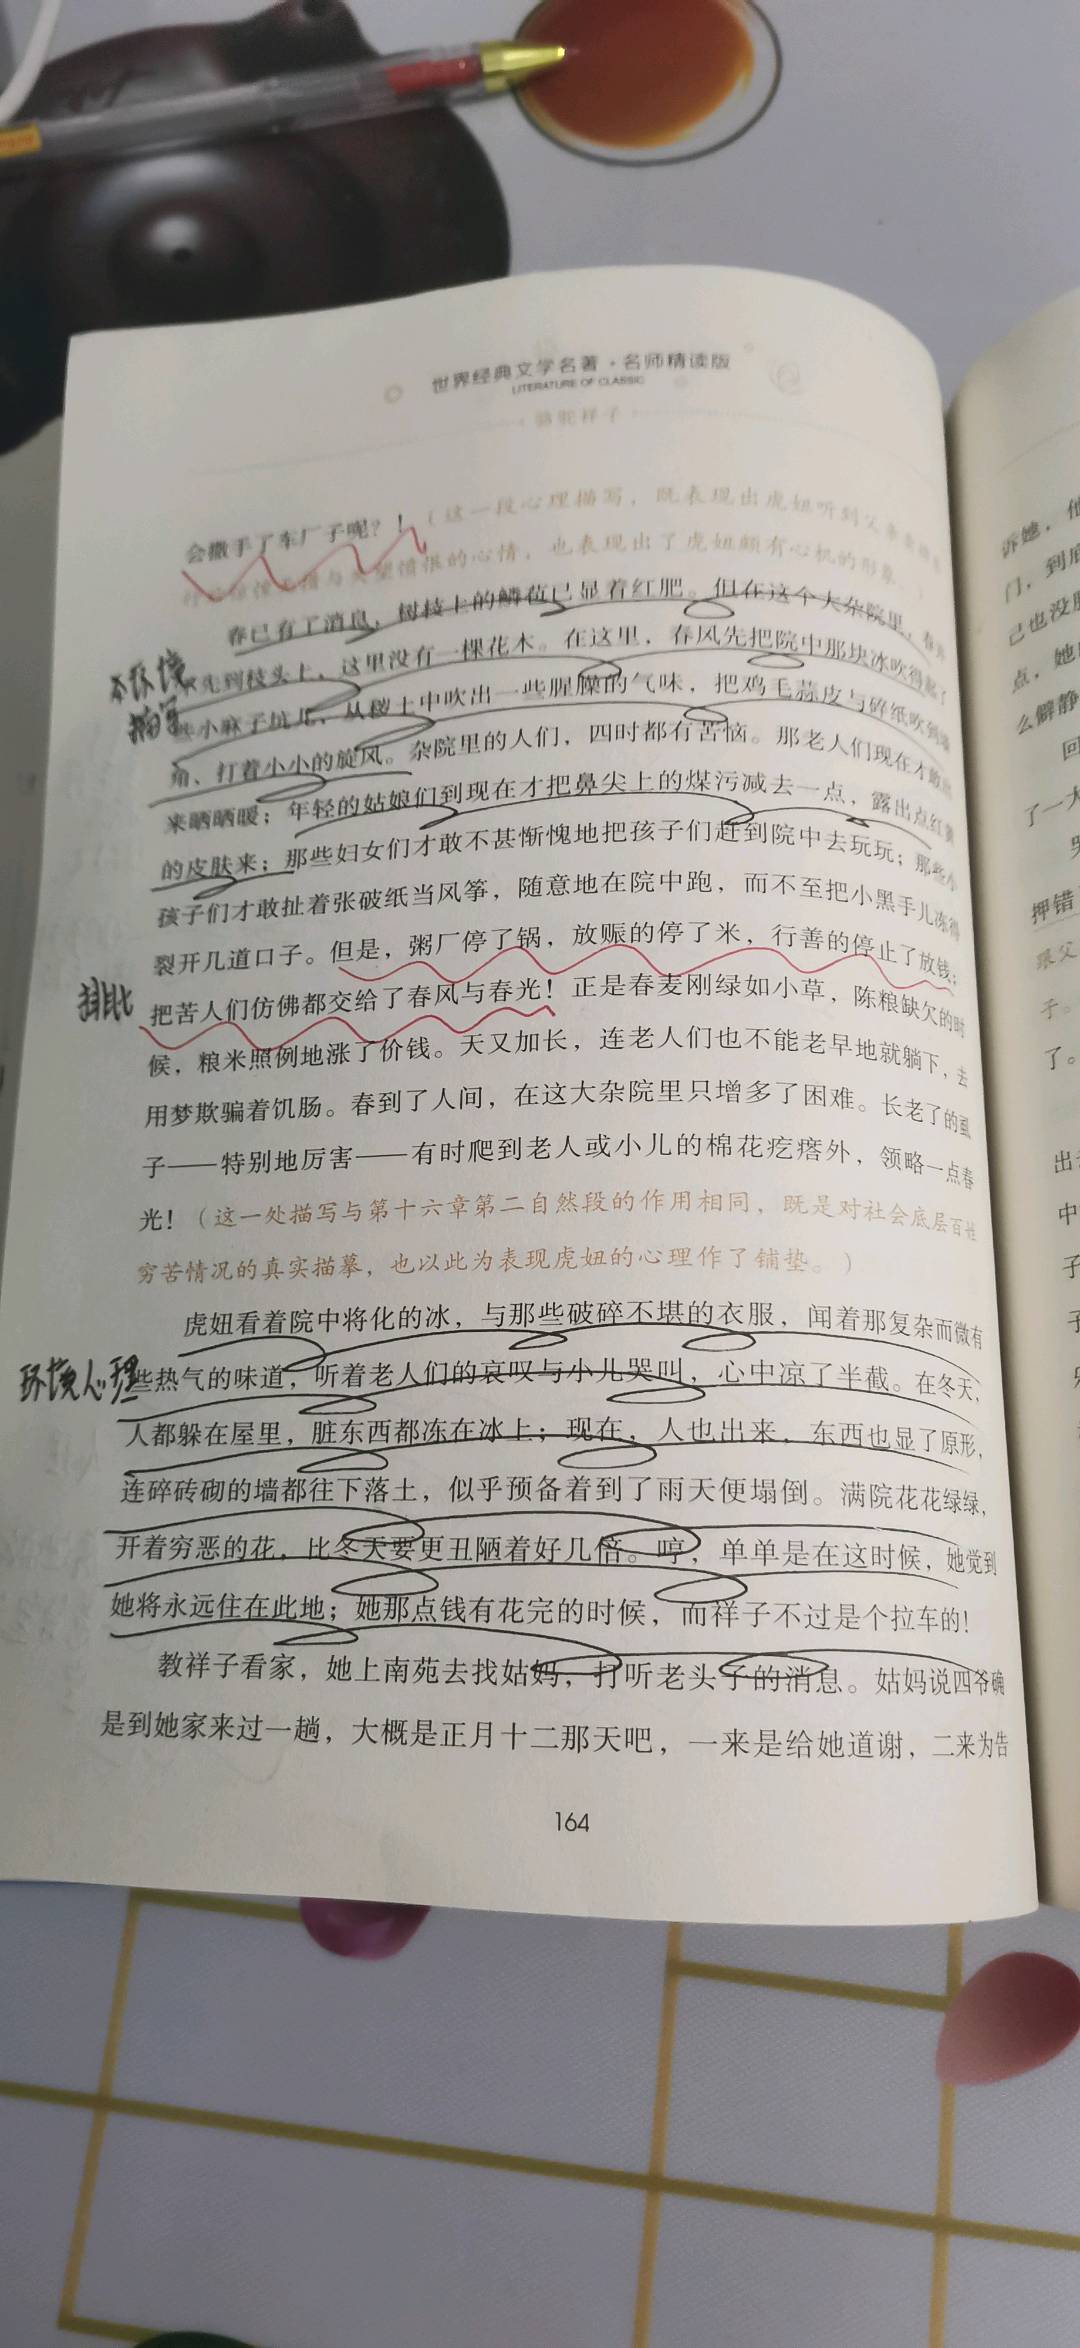 世界经典文学名著·名师精读版
LITERATURE OF CLASSIC
骆驼祥子
会撒手了车厂子呢？！（这一段心理描写，既表现出虎妞听到父亲
与失望愤恨的心情，也表现出了虎妞颇有心机的形象。）
春已有了消息，树枝上的鳞苞已显着红肥。但在这个大杂院里，春并
不先到枝头上，这里没有一棵花木。在这里，春风先把院中那块冰吹得起了
些小麻子坑儿，从秽土中吹出一些腥臊的气味，把鸡毛蒜皮与碎纸吹到墙
角，打着小小的旋风。杂院里的人们，四时都有苦恼。那老人们现在才敢出
来晒晒暖；年轻的姑娘们到现在才把鼻尖上的煤污减去一点，露出点红黄
的皮肤来；那些妇女们才敢不甚惭愧地把孩子们赶到院中去玩玩；那些小
孩子们才敢扯着张破纸当风筝，随意地在院中跑，而不至把小黑手儿冻得
裂开几道口子。但是，粥厂停了锅，放赈的停了米，行善的停止了放钱；
把苦人们仿佛都交给了春风与春光！正是春麦刚绿如小草，陈粮缺欠的时
候，粮米照例地涨了价钱。天又加长，连老人们也不能老早地就躺下，去
用梦欺骗着饥肠。春到了人间，在这大杂院里只增多了困难。长老了的虱
子——特别地厉害——有时爬到老人或小儿的棉花疙瘩外，领略一点春
光！（这一处描写与第十六章第二自然段的作用相同，既是对社会底层百姓
穷苦情况的真实描摹，也以此为表现虎妞的心理作了铺垫。）
虎妞看着院中将化的冰，与那些破碎不堪的衣服，闻着那复杂而微有
些热气的味道，听着老人们的哀叹与小儿哭叫，心中凉了半截。在冬天，
人都躲在屋里，脏东西都冻在冰上；现在，人也出来，东西也显了原形，
连碎砖砌的墙都往下落土，似乎预备着到了雨天便塌倒。满院花花绿绿，
开着穷恶的花，比冬天要更丑陋着好几倍。哼，单单是在这时候，她觉到
她将永远住在此地；她那点钱有花完的时候，而祥子不过是个拉车的！
教祥子看家，她上南苑去找姑妈，打听老头子的消息。姑妈说四爷确
是到她家来过一趟，大概是正月十二那天吧，一来是给她道谢，二来为告
164
环境
描写
排比
环境心理
诉她，他
门，到底
己也没
点，她
么僻静
回
了一大
押错
跟父
子。
了。
出
中
子